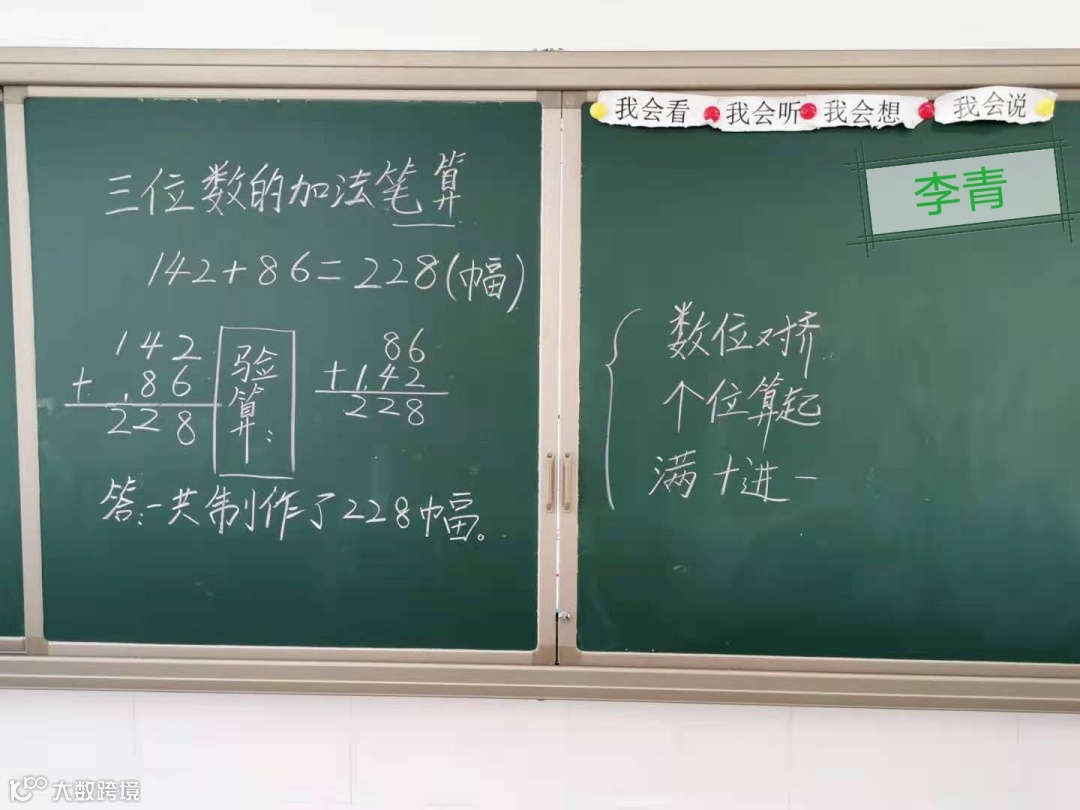 三位数的加法笔算
142+86=228(幅)
142
+ 86
228
验算:
86
+142
228
答:一共制作了228幅。
我会看 我会听 我会想 我会说
李青
数位对齐
个位算起
满十进一
大数跨境